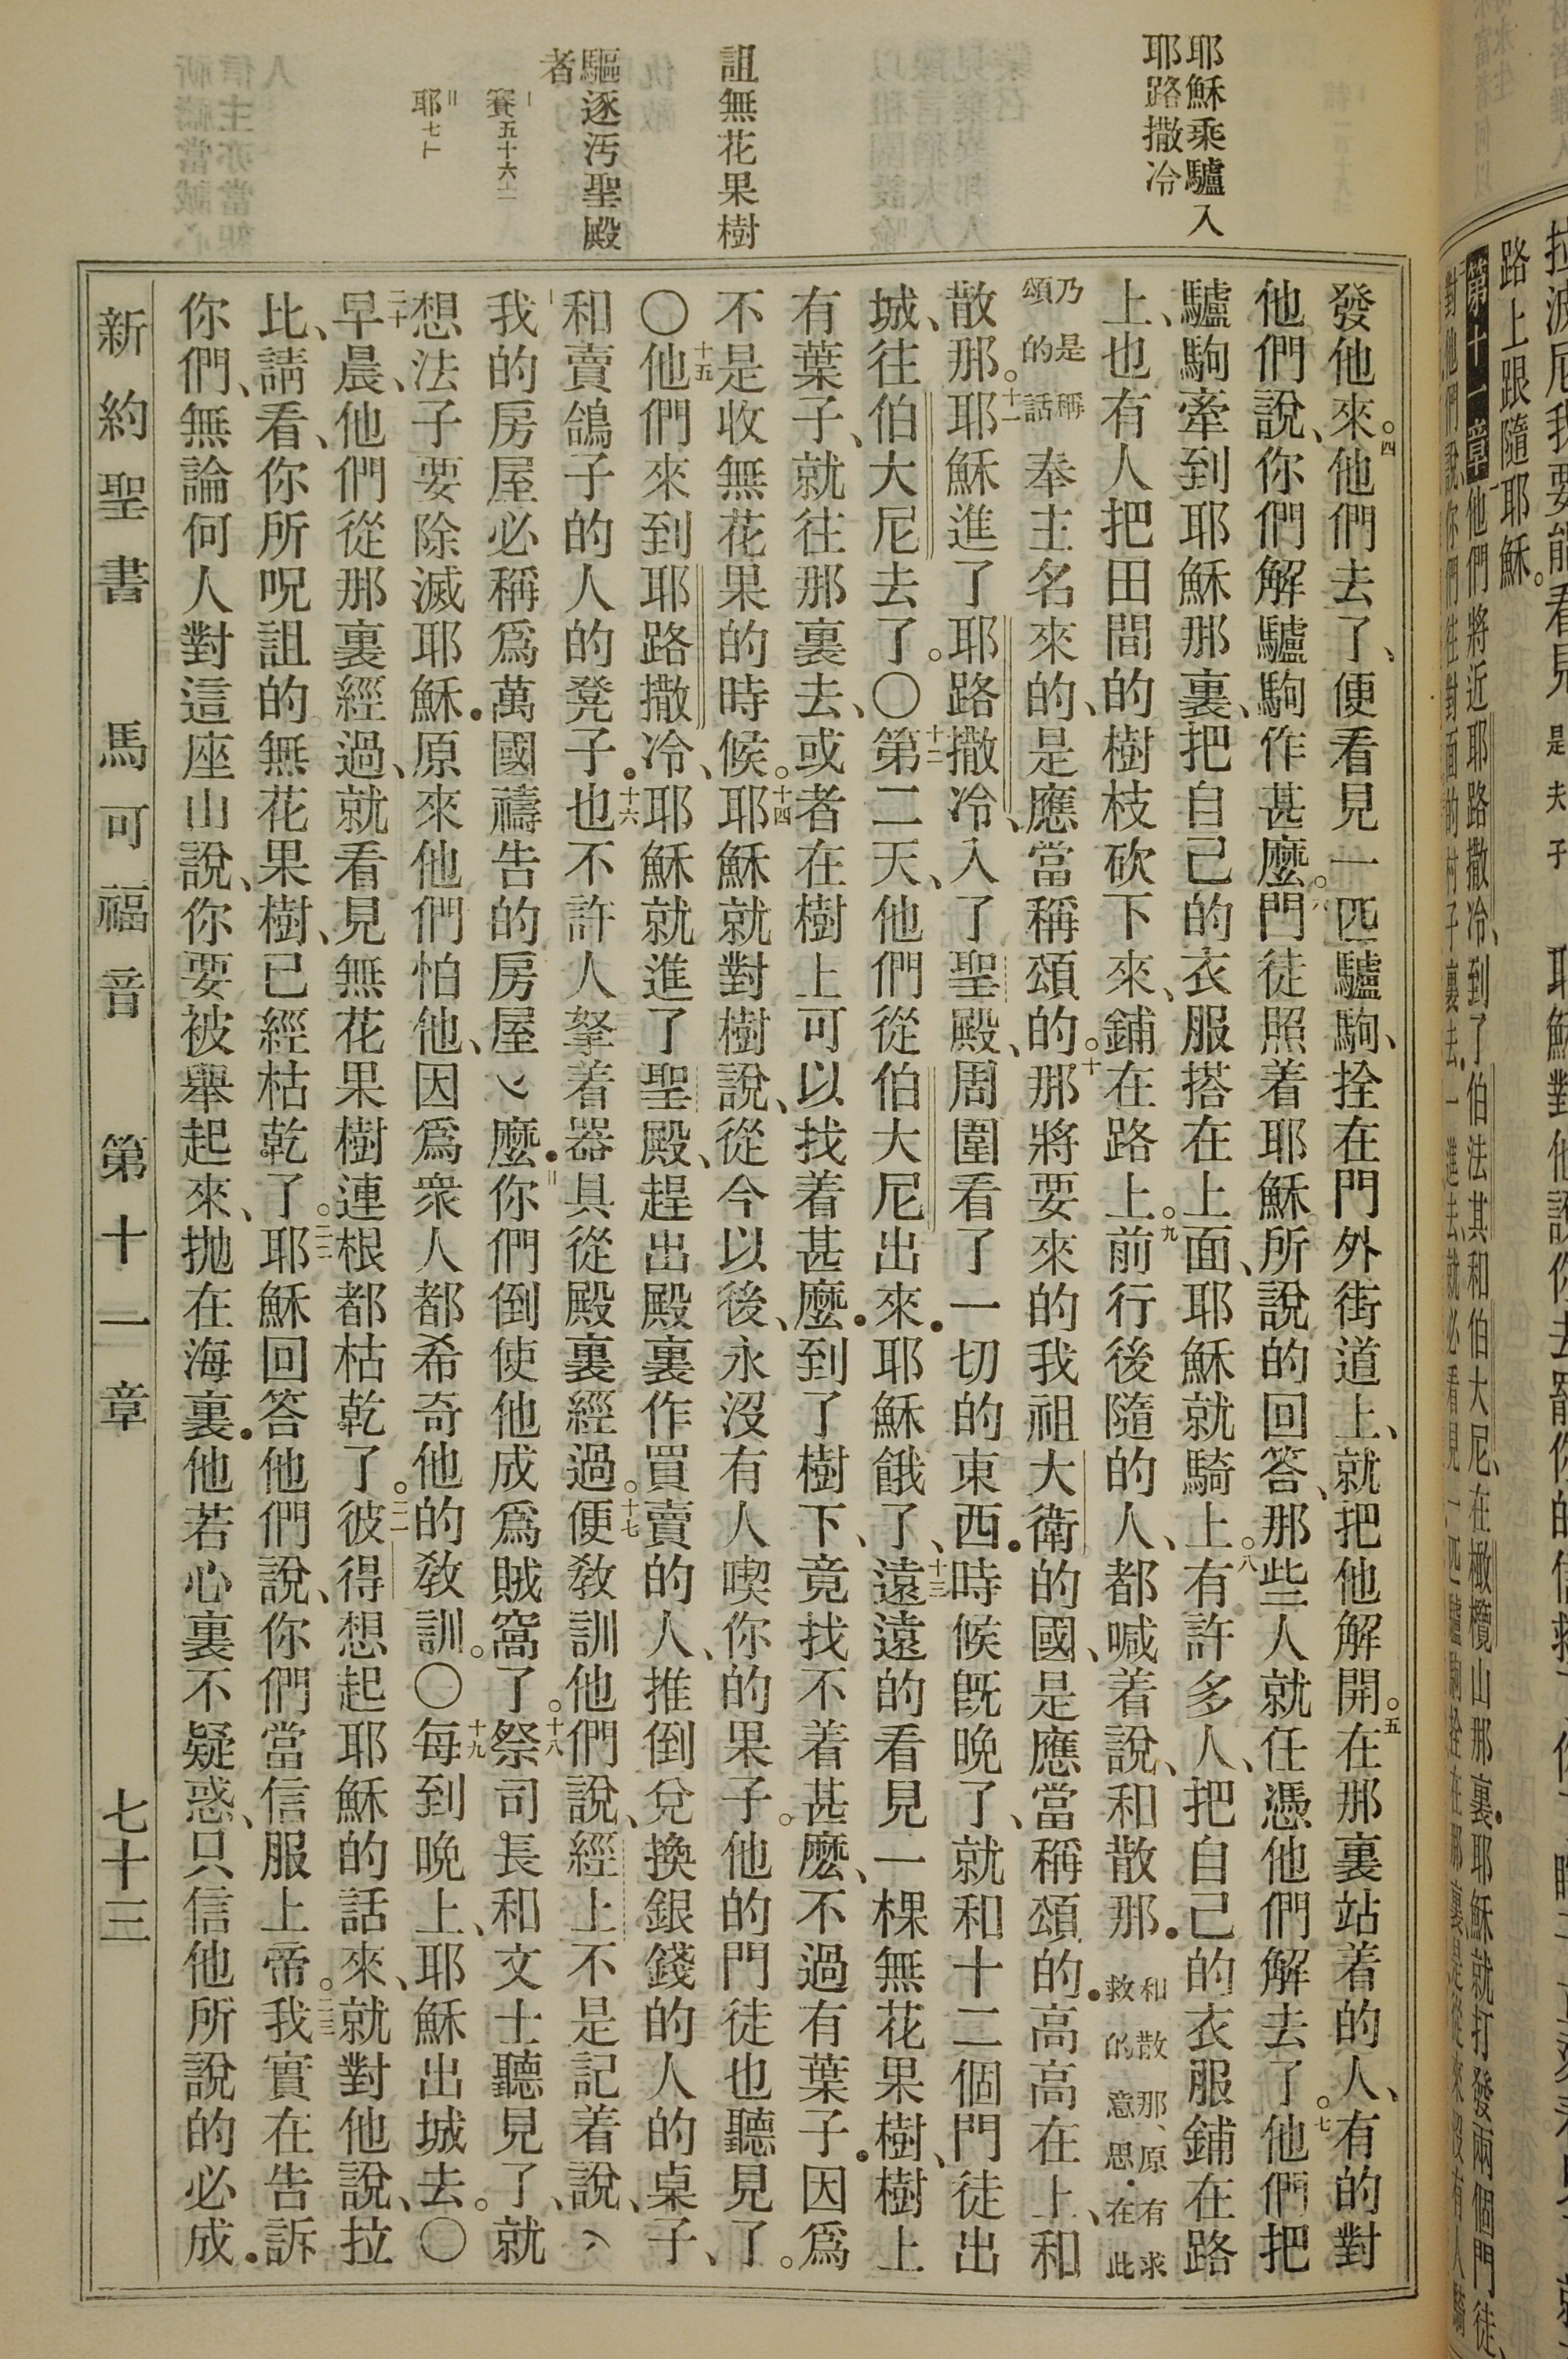 耶穌乘驢入
耶路撒冷
詛無花果樹
驅逐污聖殿
者
賽五十六
耶七
發他來。四他們去了、便看見一匹驢駒、拴在門外街道上、就把他解開。五在那裏站着的人、有的對
他們說、你們解驢駒作甚麼。六門徒照着耶穌所說的回答、那些人就任憑他們解去了。七他們把
驢駒牽到耶穌那裏、把自己的衣服搭在上面、耶穌就騎上。八有許多人、把自己的衣服鋪在路
上、也有人把田間的樹枝砍下來、鋪在路上。九前行後隨的人、都喊着說、和散那．和散那、原有求救的意思．在此
乃是稱頌的話奉主名來的、是應當稱頌的。十那將要來的我祖大衛的國、是應當稱頌的．高高在上、和
散那。十一耶穌進了耶路撒冷、入了聖殿、周圍看了一切的東西．時候旣晚了、就和十二個門徒出
城、往伯大尼去了。〇十二第二天、他們從伯大尼出來．耶穌餓了、十三遠遠的看見一棵無花果樹、樹上
有葉子、就往那裏去、或者在樹上可以找着甚麼．到了樹下、竟找不着甚麽、不過有葉子．因爲
不是收無花果的時候。十四耶穌就對樹說、從今以後、永沒有人喫你的果子。他的門徒也聽見了。
〇十五他們來到耶路撒冷、耶穌就進了聖殿、趕出殿裏作買賣的人、推倒兌換銀錢的人的桌子、
和賣鴿子的人的凳子．十六也不許人拏着器具從殿裏經過。十七便敎訓他們說、經上不是記着說、
我的房屋必稱爲萬國禱告的房屋麼．你們倒使他成爲賊窩了。十八祭司長和文士聽見了、就
想法子要除滅耶穌．原來他們怕他、因爲衆人都希奇他的敎訓。〇十九每到晚上、耶穌出城去。〇
二十早晨、他們從那裏經過、就看見無花果樹連根都枯乾了。二一彼得想起耶穌的話來、就對他說、拉
比、請看、你所呪詛的無花果樹、已經枯乾了。二二耶穌回答他們說、你們當信服上帝。二三我實在告訴
你們、無論何人對這座山說、你要被舉起來、拋在海裏．他若心裏不疑惑、只信他所說的必成．
新約聖書　馬可福音　第十一章　七十三
路上跟隨耶穌。
第十一章　他們將近耶路撒冷、到了伯法其和伯大尼、在橄欖山那裏．耶穌就打發兩個門徒、